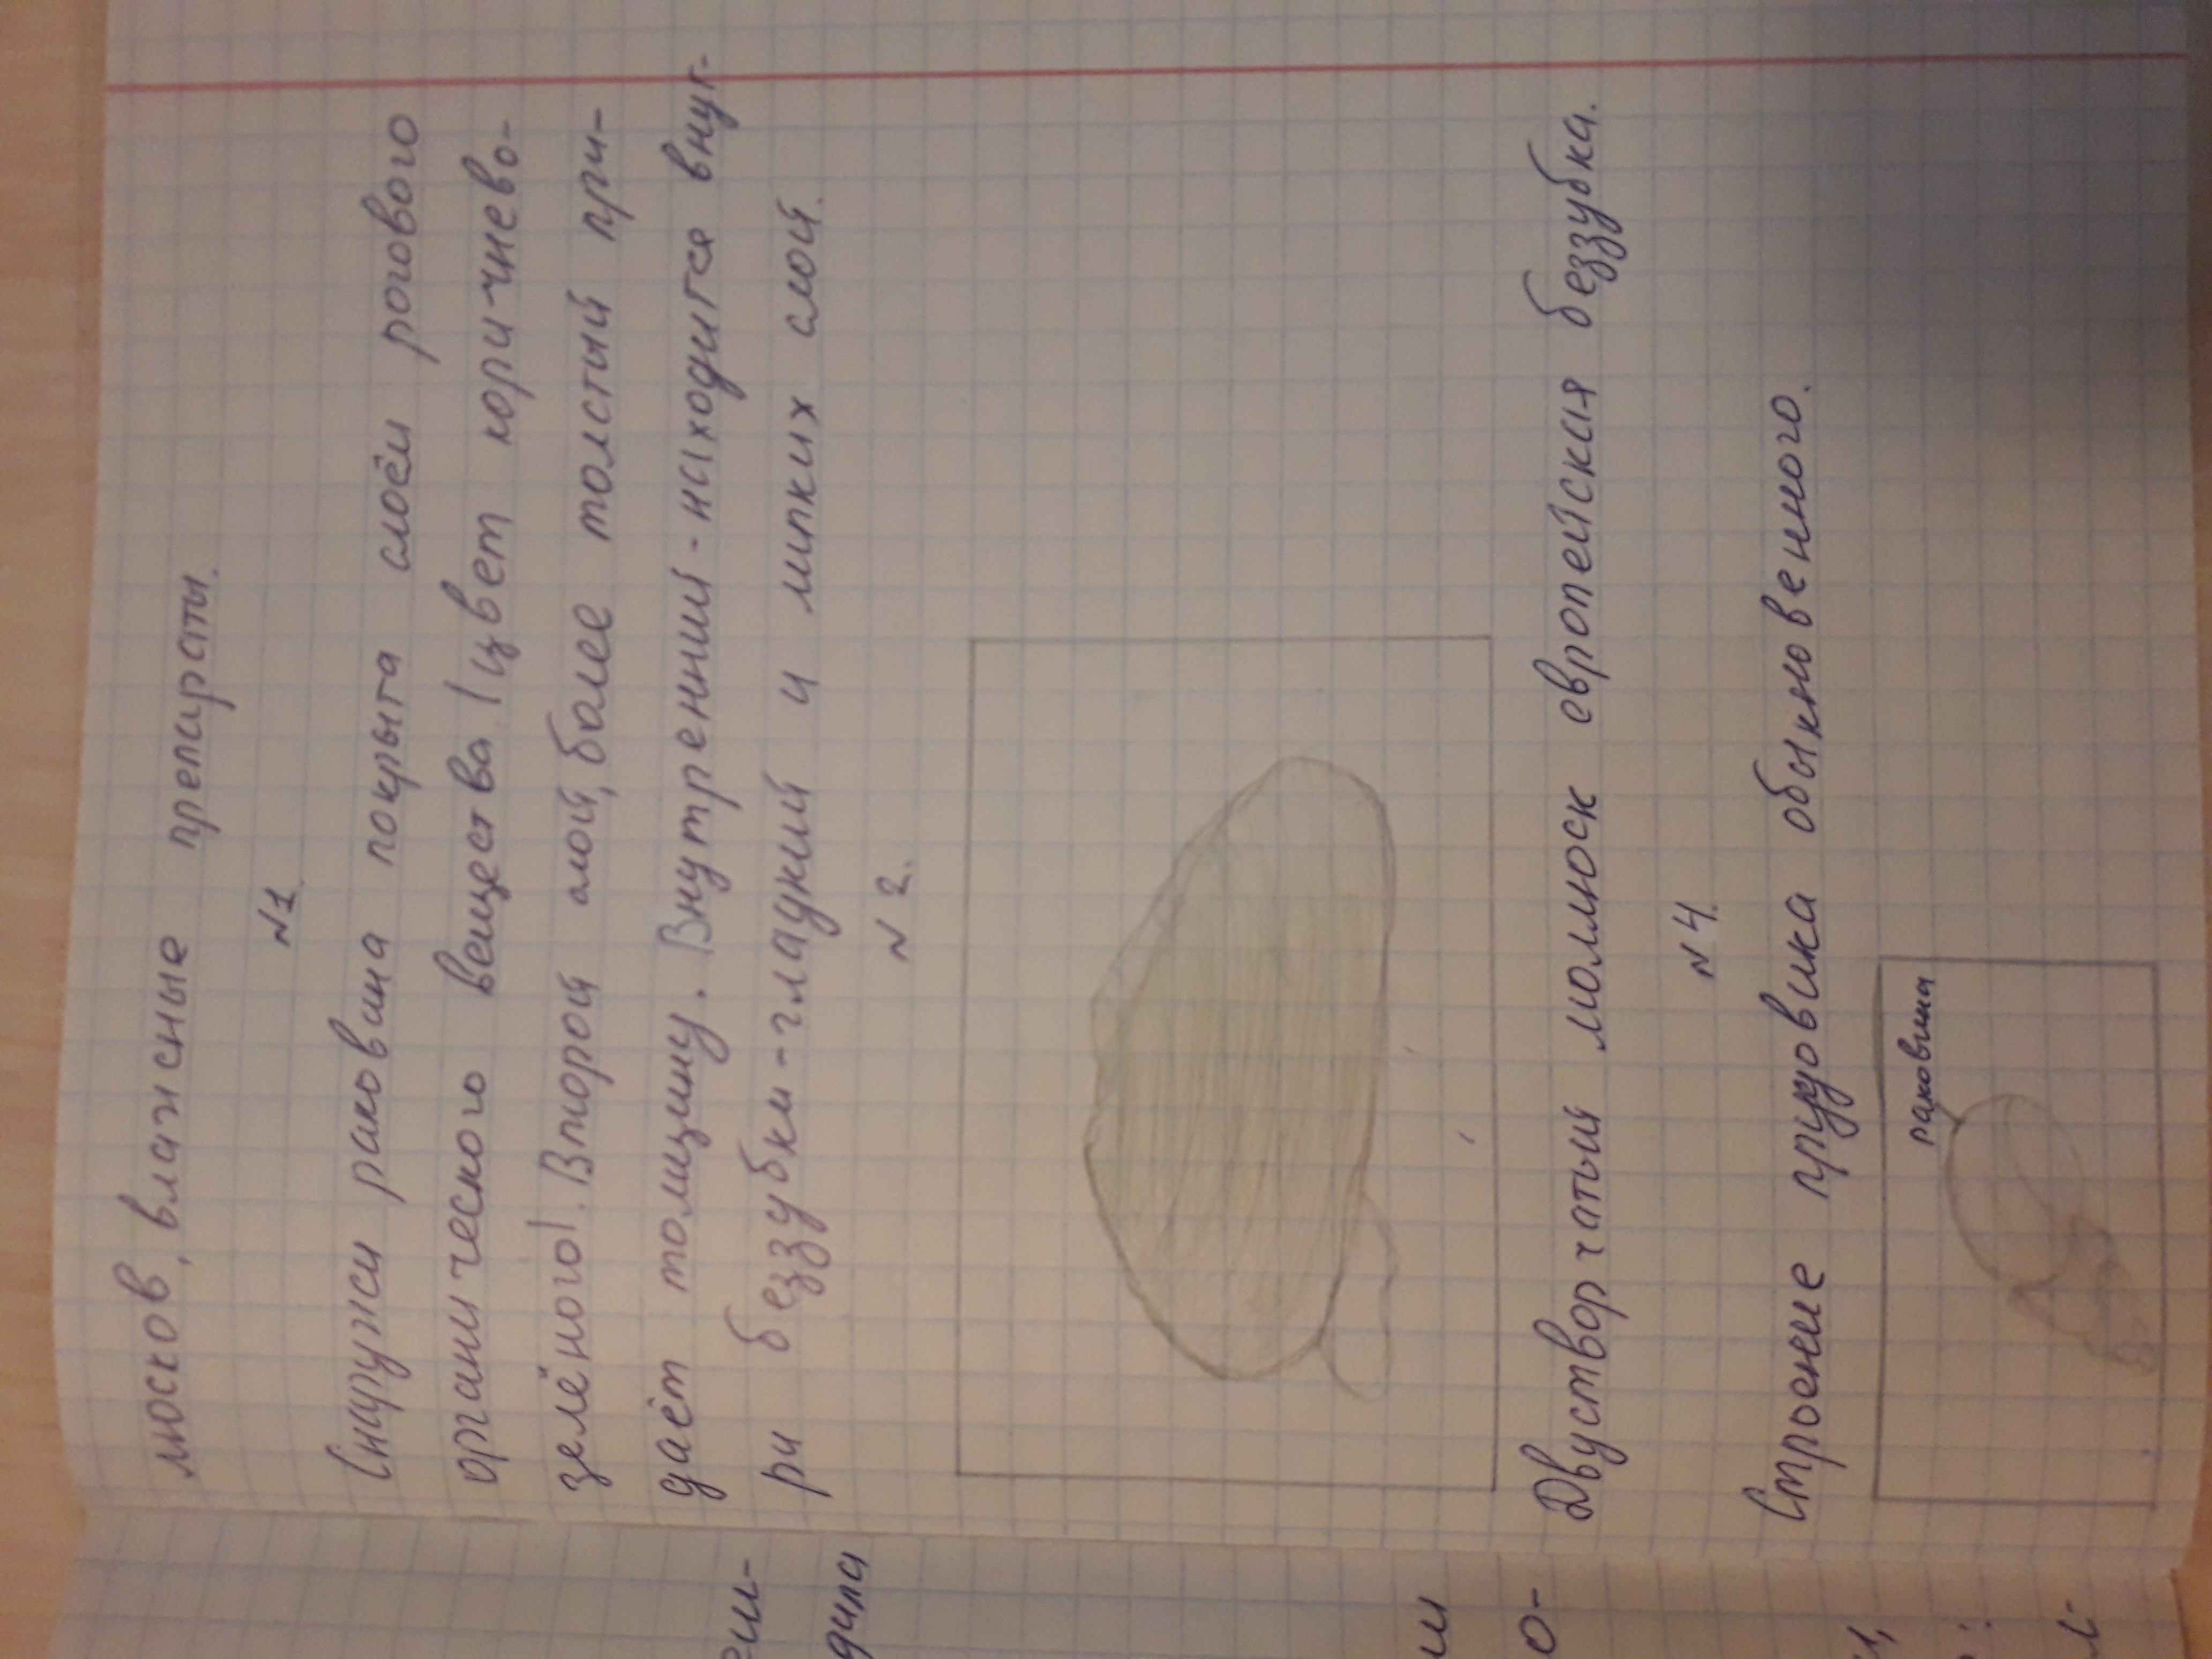 люсков, влажные препараты.
N1.
Снаружи раковина покрыта слоем рогового
органического вещества (цвет коричнево-
зелёного). Второй слой, более толстый при-
даёт толщину. Внутренний - находится внут-
ри беззубки - гладкий и липких слой.
N 2.
Двустворчатый моллюск европейская беззубка.
N 4.
Строение прудовика обыкновенного.
раковина
дила
и
о-